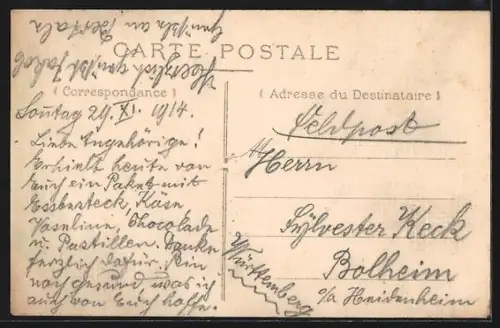 CARTE POSTALE
( Correspondance )
Sontag 29. XI. 1914.
Liebe Angehörige!
Erhielt heute von
Euch ein Paket mit
Essbesteck, Käse
Vaseline, Chocolade
u. Pastillen. Danke
herzlich dafür, bin
noch gesund, was ich
auch von Euch hoffe.
Herzlich grüsst Jakob
Grüsse an
( Adresse du Destinataire )
Feldpost
Herrn
Sylvester Keck
Bolheim
o/a Heidenheim
Württemberg